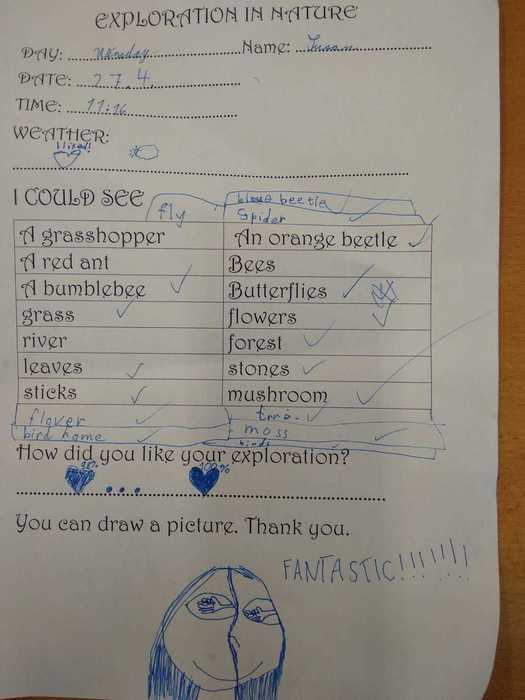 EXPLORATION IN NATURE
DAY: Monday Name:
DATE: 27.4.
TIME: 11:16
WEATHER:
I liked!
I COULD SEE
fly blue beetle
Spider
A grasshopper An orange beetle
A red ant Bees
A bumblebee Butterflies
grass flowers
river forest
leaves stones
sticks mushroom
flover
bird home moss
birds
How did you like your exploration?
98% ... 100%
You can draw a picture. Thank you.
FANTASTIC!!!!!!!